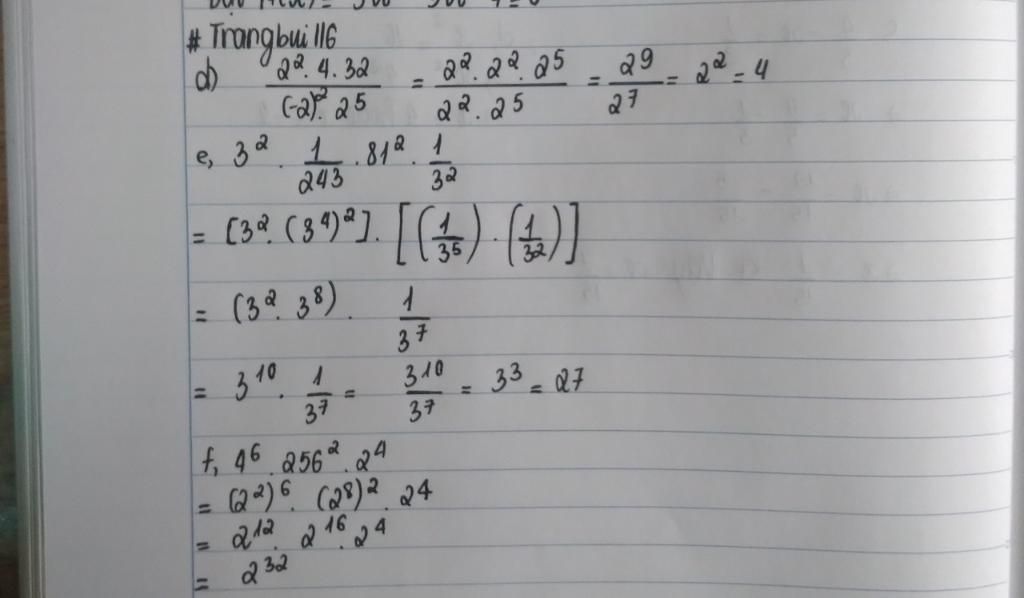 # Trangbui116
d) 2². 4. 32 / (-2)². 2⁵ = 2². 2². 2⁵ / 2². 2⁵ = 2⁹ / 2⁷ = 2² = 4
e, 3² . 1/243 . 81² . 1/3²
= [3². (3⁴)²] . [(1/3⁵) . (1/3²)]
= (3². 3⁸) . 1/3⁷
= 3¹⁰ . 1/3⁷ = 3¹⁰/3⁷ = 3³ = 27
f, 4⁶ . 256² . 2⁴
= (2²)⁶ . (2⁸)² . 2⁴
= 2¹² . 2¹⁶ . 2⁴
= 2³²